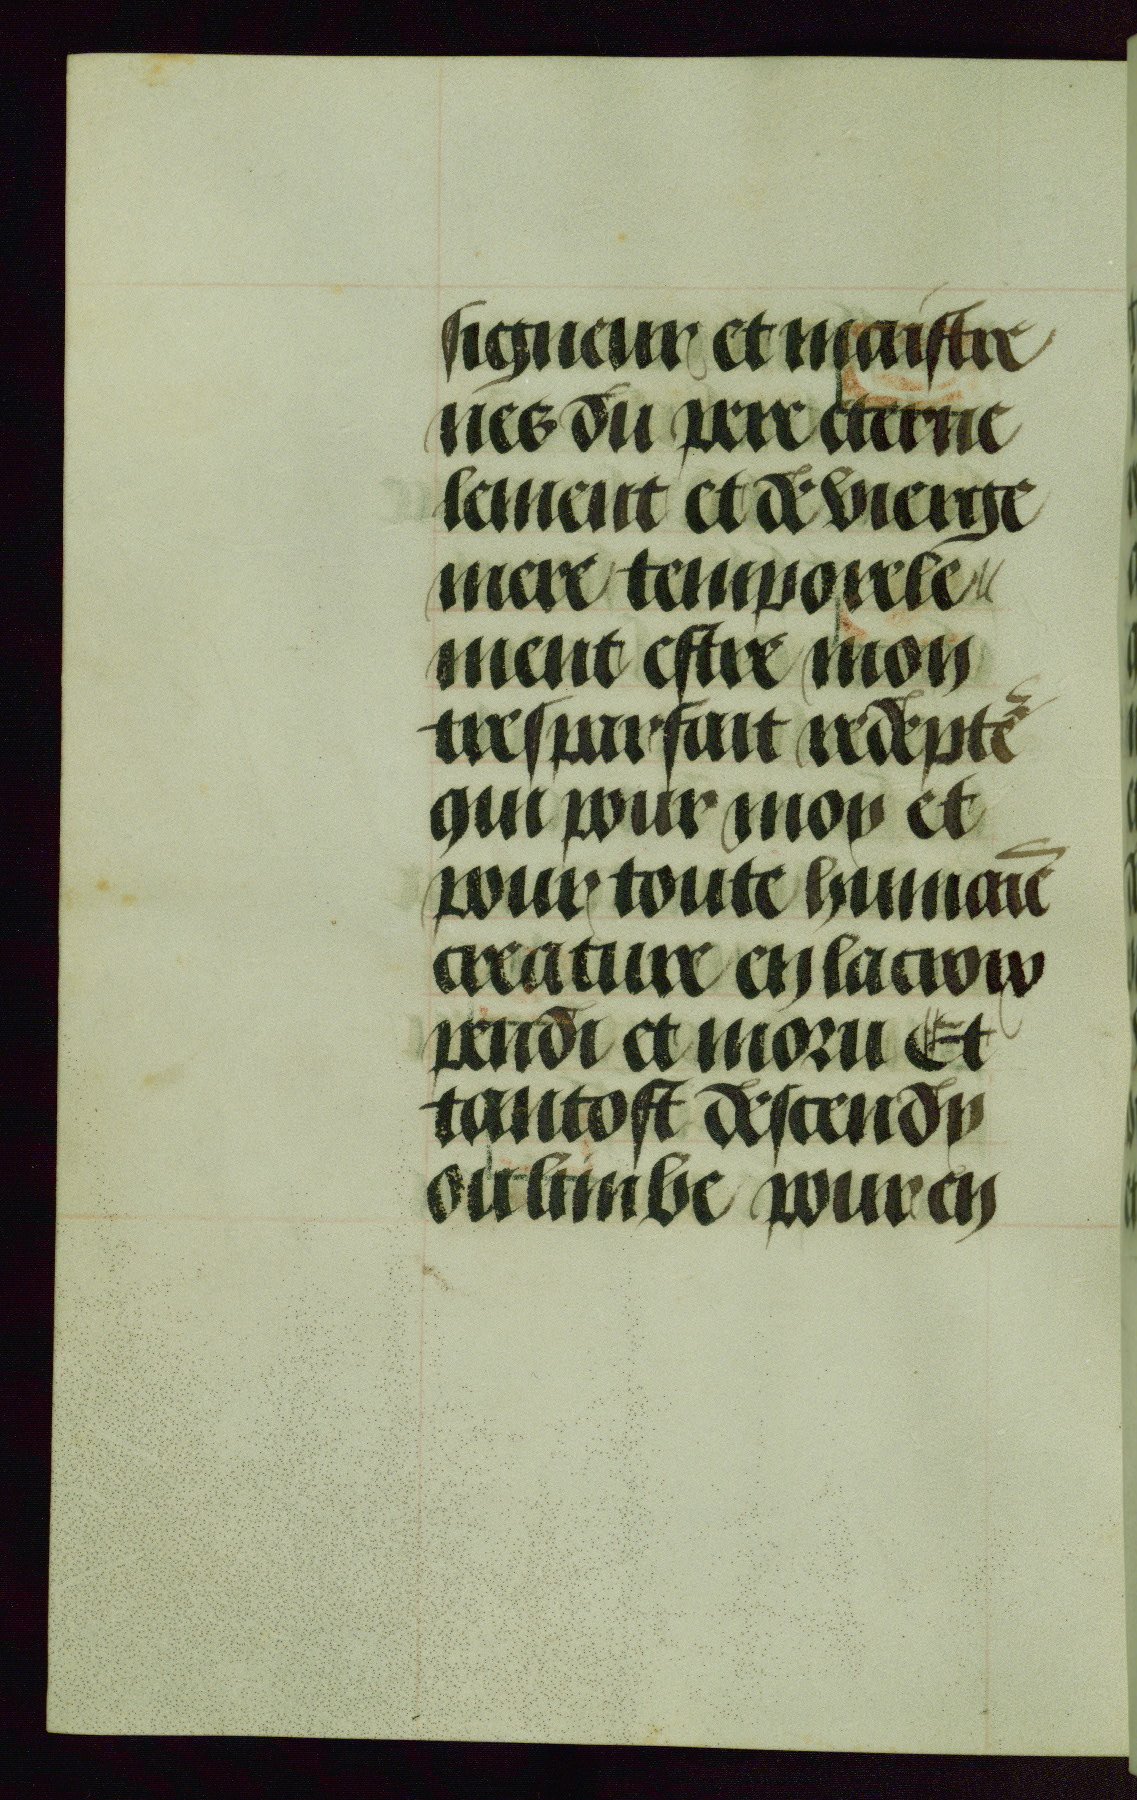 signeur et maistre
nes du pere eterne
lement et de vierge
mere temporele
ment estre mon
tresparfait redēpt̄e
qui pour moy et
pour toute humaīe
creature en la croix
pendi et moru Et
tantost descendy
ou limbe pour en